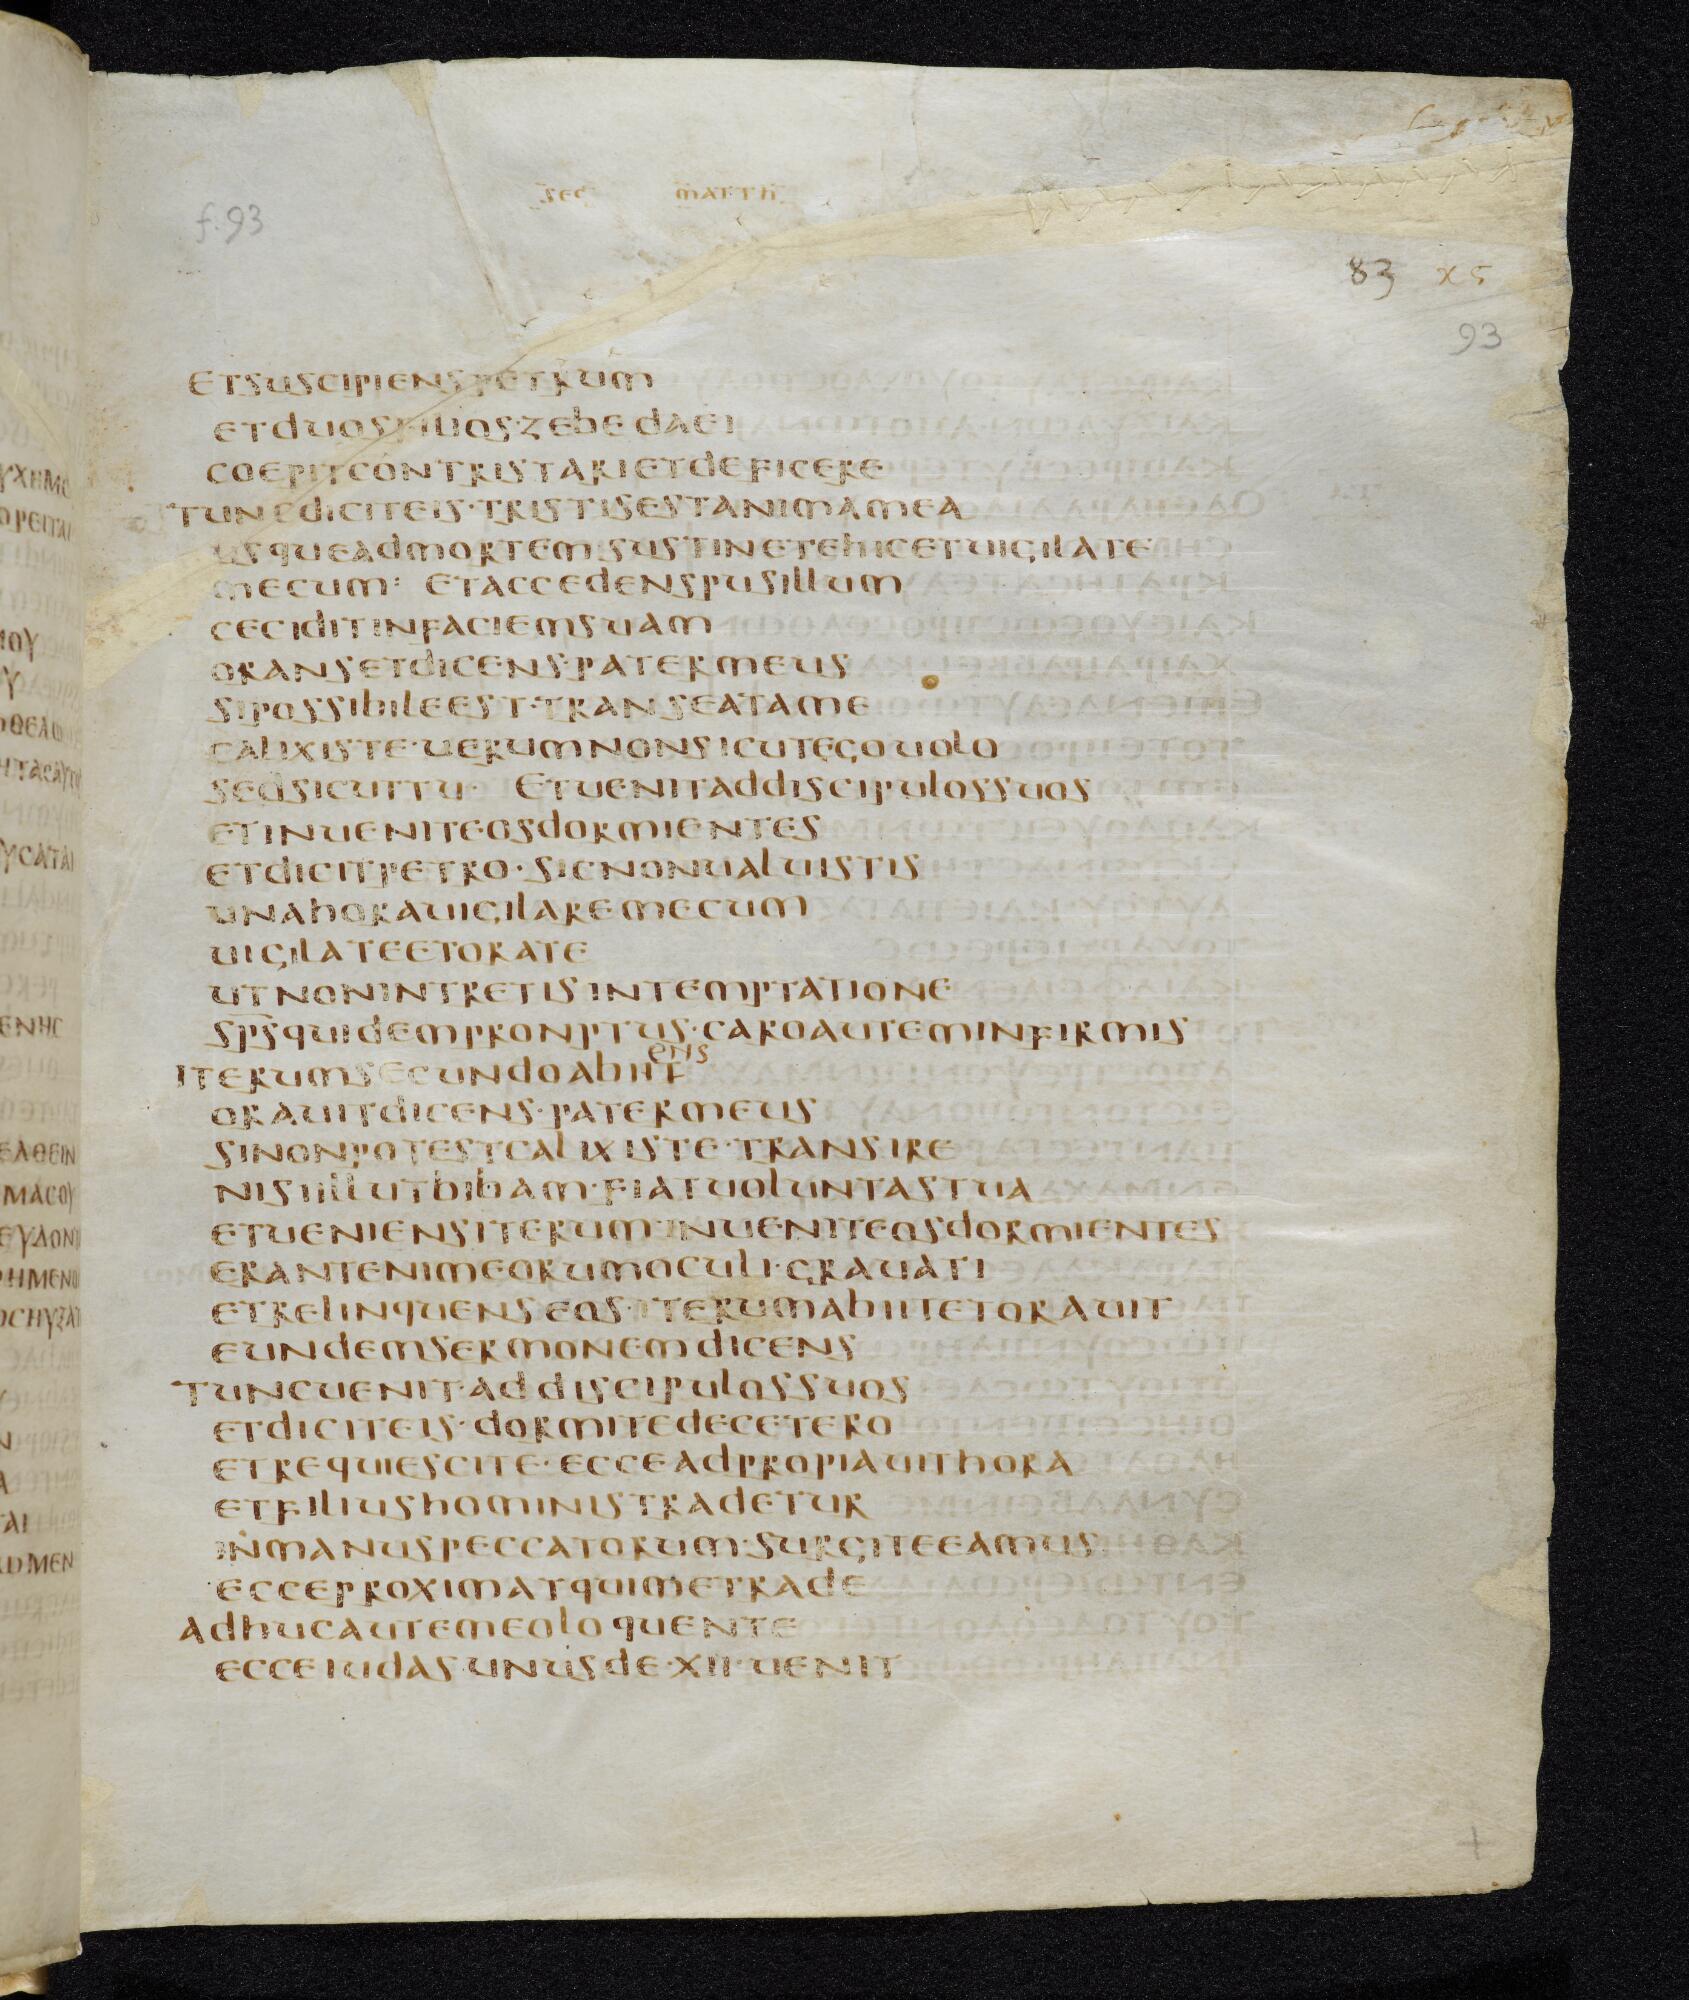 SEC MATTH
f. 93
83 x5
93
ETSUSCIPIENSPETRUM
ETDUOSFILIOS·ZEBEDAEI
COEPITCONTRISTARIETDEFICERE
TUNCDICITEIS·TRISTISESTANIMAMEA
USQUEADMORTEMSUSTINETEHICETUIGILATE
MECUM: ETACCEDENSPUSILLUM
CECIDITINFACIEMSUAM
ORANSETDICENS·PATERMEUS
SIPOSSIBILEEST·TRANSEATAME
CALIXISTE·UERUMNONSICUTEGOUOLO
SEDSICUTTU· ETUENITADDISCIPULOSSUOS
ETINUENITEOSDORMIENTES
ETDICITPETRO·SICNONUALUISTIS
UNAHORAUIGILAREMECUM
UIGILATEETORATE
UTNONINTRETISINTEMPTATIONE
SPSQUIDEMPRONPTUS·CAROAUTEMINFIRMIS
ENS
ITERUMSECUNDOABIIT
ORAUITDICENS·PATERMEUS
SINONPOTESTCALIXISTE·TRANSIRE
NISIILLUTBIBAM·FIATUOLUNTASTUA
ETUENIENSITERUM·INUENITEOSDORMIENTES
ERANTENIMEORUMOCULI·GRAUATI
ETRELINQUENSEOS·ITERUMABIITETORAUIT
EUNDEMSERMONEMDICENS
TUNCUENIT·ADDISCIPULOSSUOS
ETDICITEIS·DORMITEDECETERO
ETREQUIESCITE·ECCEADPROPIAUITHORA
ETFILIUSHOMINISTRADETUR
INMANUSPECCATORUM·SURGITEEAMUS
ECCEPROXIMATQUIMETRADE
ADHUCAUTEMEOLOQUENTE
ECCEIUDAS·UNUSDE·XII·UENIT